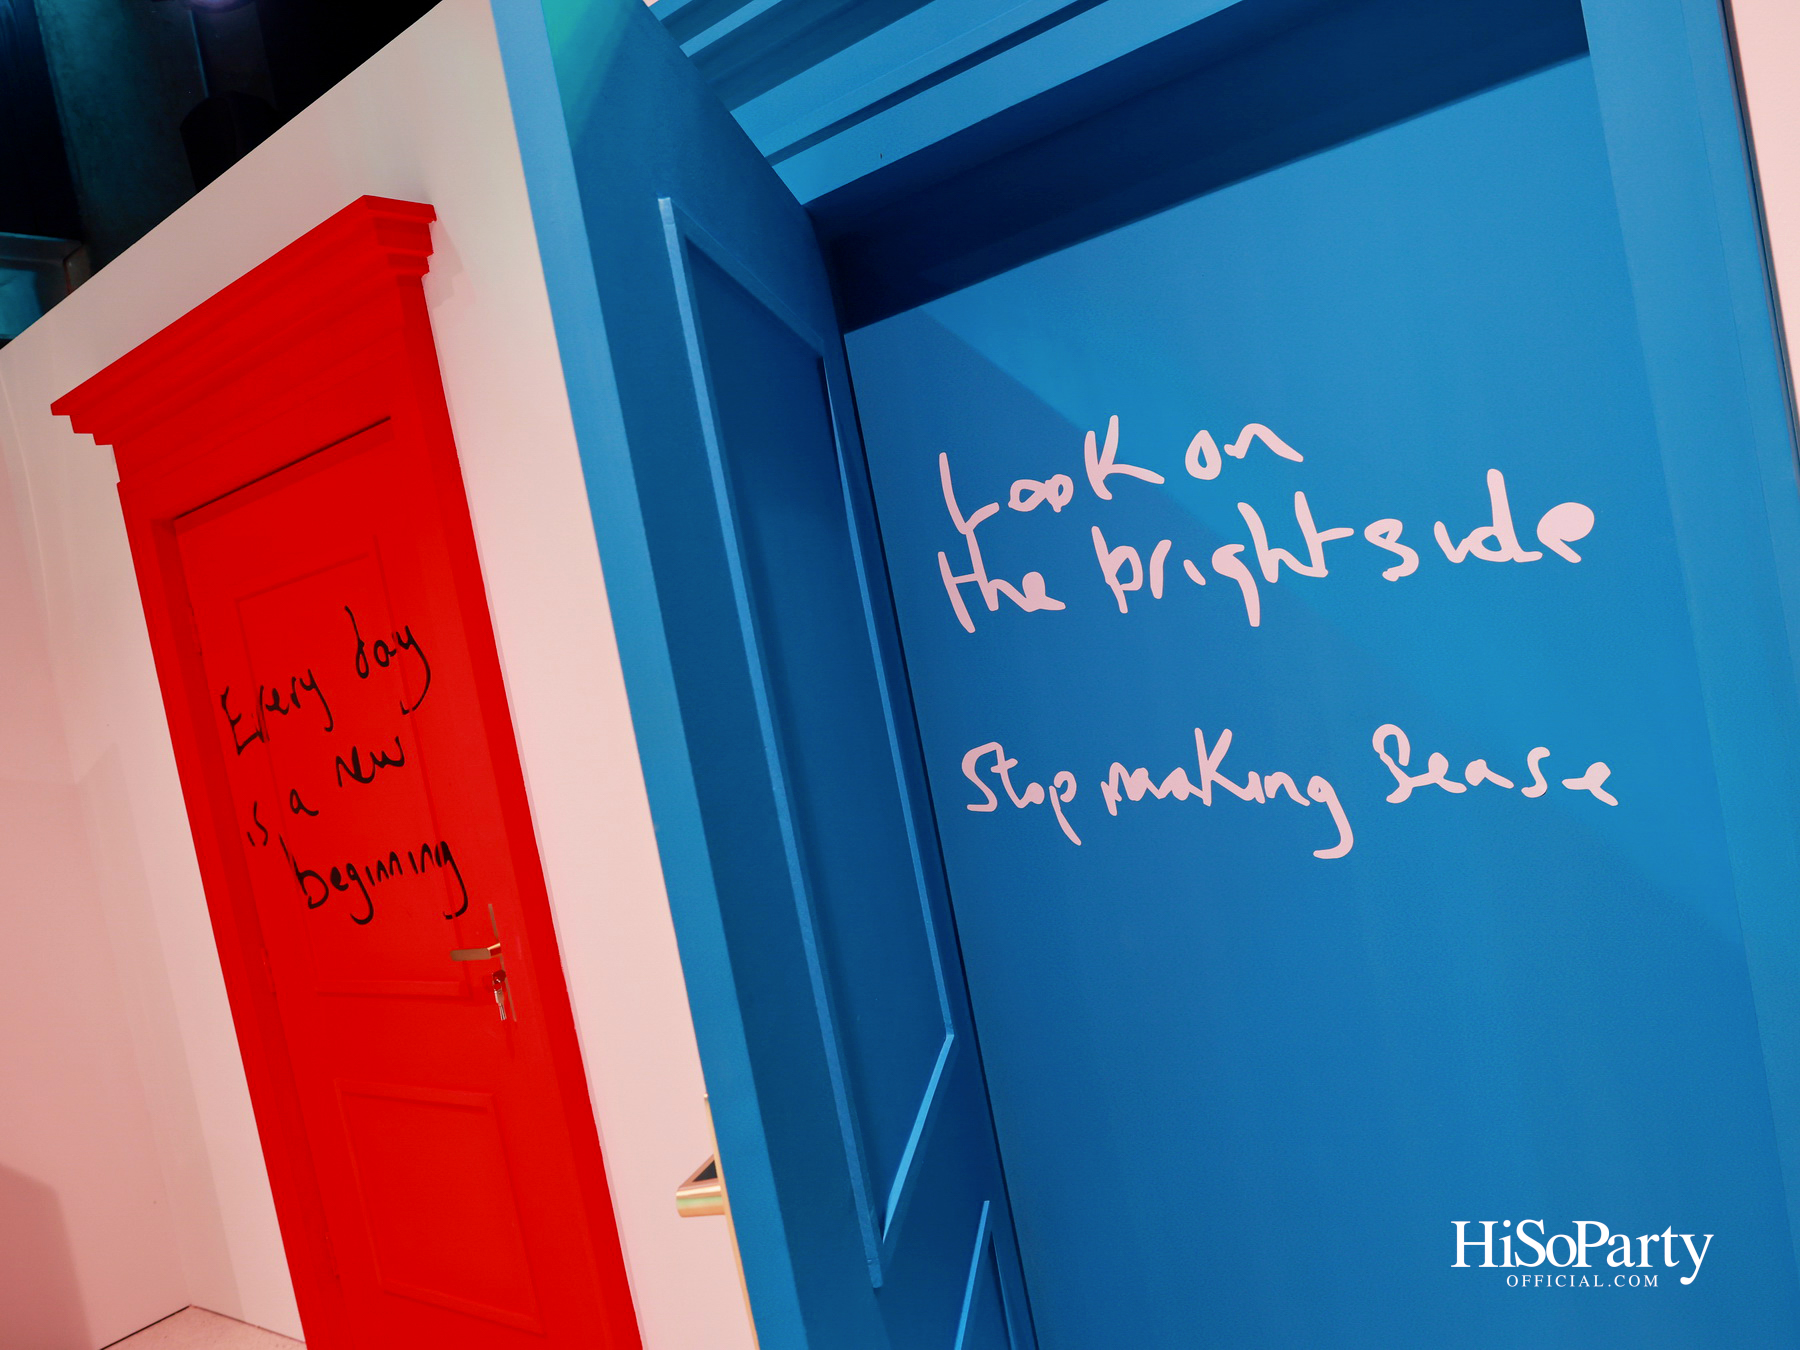 Every day
is a new
beginning
Look on
the bright side
Stop making Sense
HiSoParty
OFFICIAL.COM